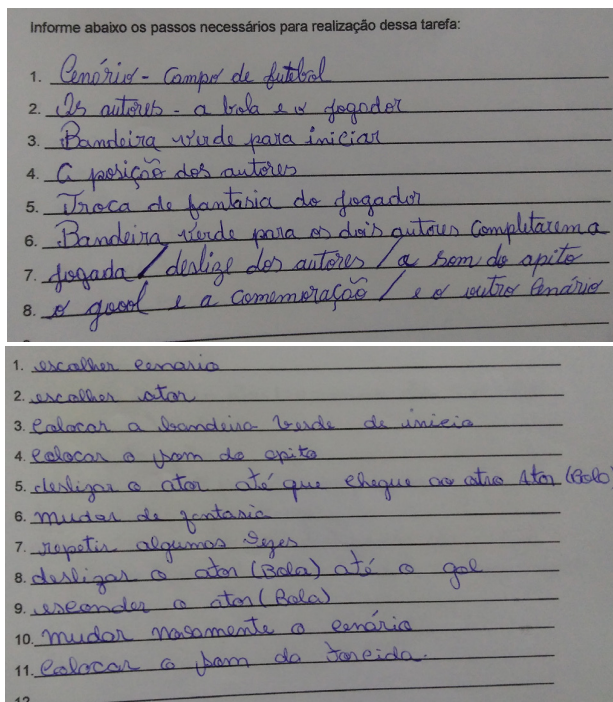 Informe abaixo os passos necessários para realização dessa tarefa:
1. Cenório - Campo de futebol
2. Os autores - a bola e o jogador
3. Bandeira verde para iniciar
4. A posição dos autores
5. Troca de fantasia do jogador
6. Bandeira verde para os dois autores completarem a
7. jogada / deslize dos autores / a som do apito
8. o gool e a comemoração / e o outro Cenário
1. escolher cenario
2. escolher ator
3. Colocar a bandeira verde de inicio
4. Colocar o som do apito
5. deslizar o ator até que chegue ao otro Ator (Bola)
6. mudar de fantasia
7. repetir algumas vezes
8. deslizar o ator (Bola) até o gol
9. esconder o ator (Bola)
10. mudar novamente o cenário
11. Colocar o som da torcida.
12